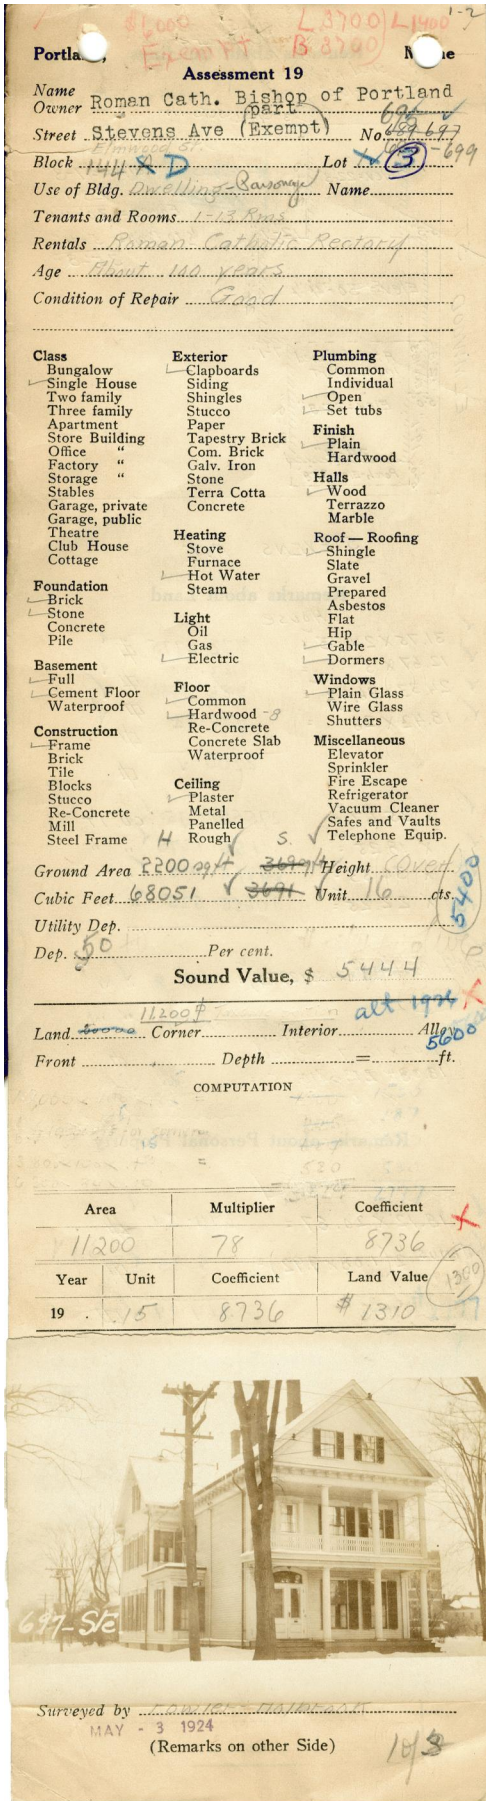 1-2
$6000 L 3700 L 1400
Exempt B 8700
Portland, Maine
Assessment 19
Name
Owner Roman Cath. Bishop of Portland
part 695
Street Stevens Ave (Exempt) No. 689-697
Elmwood St. -699
Block 144 A D Lot 3
Use of Bldg. Dwelling-Parsonage Name
Tenants and Rooms 1-13 Rms
Rentals Roman Catholic Rectory
Age About 100 years
Condition of Repair Good
Class
Bungalow
Single House
Two family
Three family
Apartment
Store Building
Office "
Factory "
Storage "
Stables
Garage, private
Garage, public
Theatre
Club House
Cottage
Foundation
Brick
Stone
Concrete
Pile
Basement
Full
Cement Floor
Waterproof
Construction
Frame
Brick
Tile
Blocks
Stucco
Re-Concrete
Mill
Steel Frame
Exterior
Clapboards
Siding
Shingles
Stucco
Paper
Tapestry Brick
Com. Brick
Galv. Iron
Stone
Terra Cotta
Concrete
Heating
Stove
Furnace
Hot Water
Steam
Light
Oil
Gas
Electric
Floor
Common
Hardwood -8
Re-Concrete
Concrete Slab
Waterproof
Ceiling
Plaster
Metal
Panelled
Rough
Plumbing
Common
Individual
Open
Set tubs
Finish
Plain
Hardwood
Halls
Wood
Terrazzo
Marble
Roof — Roofing
Shingle
Slate
Gravel
Prepared
Asbestos
Flat
Hip
Gable
Dormers
Windows
Plain Glass
Wire Glass
Shutters
Miscellaneous
Elevator
Sprinkler
Fire Escape
Refrigerator
Vacuum Cleaner
Safes and Vaults
Telephone Equip.
H S.
Ground Area 2200 sq ft Height Over
Cubic Feet 68051 3691 Unit 16 cts.
5400
Utility Dep.
Dep. 50 Per cent.
Sound Value, $ 5444
11200 alt 1926
Land Corner Interior Alloy
5600
Front Depth = ft.
COMPUTATION
Area Multiplier Coefficient
11200 78 8736
Year Unit Coefficient Land Value
1300
19 . .15 8736 $ 1310
697-Ste
Surveyed by
MAY - 3 1924
(Remarks on other Side)